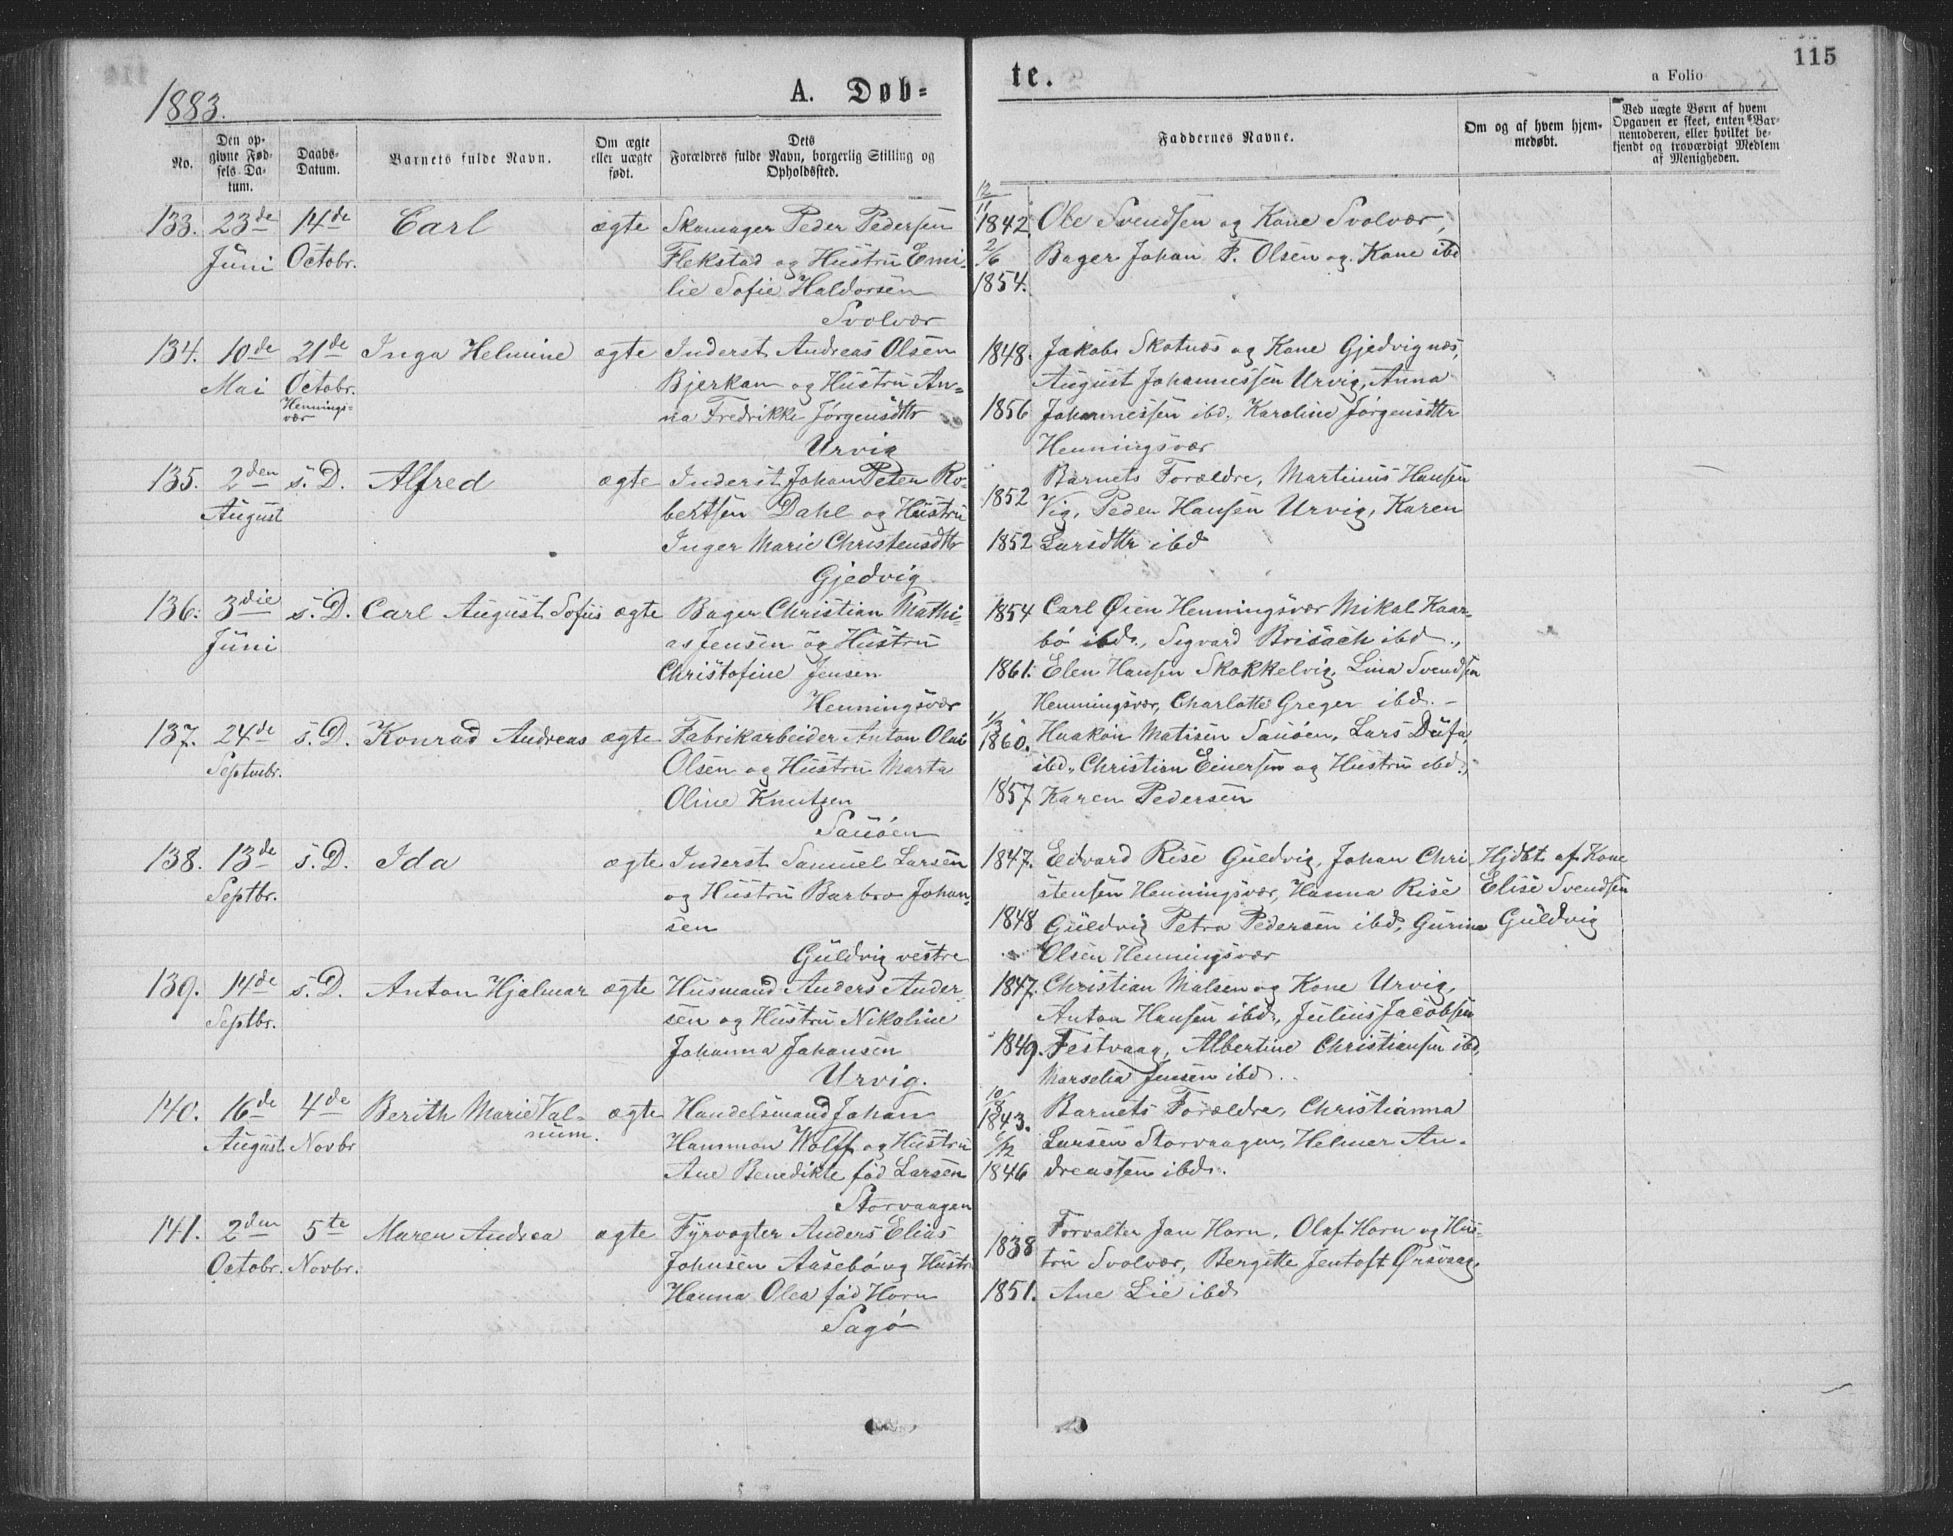 115
a Folio
1883.
A. Døb-
te.
No.
Den op-
givne Fød-
sels-Da-
tum.
Daabs-
Datum.
Barnets fulde Navn.
Om ægte
eller uægte
født.
Dets
Forældres fulde Navn, borgerlig Stilling og
Opholdssted.
Faddernes Navne.
Om og af hvem hjem-
medøbt.
Ved uægte Børn af hvem
Opgaven er skeet, enten Bar-
nemoderen, eller hvilket be-
kjendt og troværdigt Medlem
af Menigheden.
133. 23de 14de Carl ægte Skomager Peder Pedersen 12/11 1842. Ole Svendsen og Kone Svolvær,
Juni Octobr. Flekstad og Hustru Emi- 2/6 Bager Johan F. Olsen og Kone ibd
lie Sofie Haldorsen 1854.
Svolvær
134. 10de 21de Inga Helmine ægte Inderst Andreas Olsen 1848. Jakob Skotnæs og Kone Gjedvignæs,
Mai Octobr. Bjerkan og Hustru An- August Johannessen Urvig, Anna
Hennings-
vær na Fredrikke Jørgensdttr 1856 Johannessen ibd, Karoline Jørgensdttr
Urvig Henningsvær
135. 2den s. D. Alfred ægte Inderst Johan Peter Ro- Barnets Forældre, Martinus Hansen
August bertsen Dahl og Hustru 1852 Vig, Peder Hansen Urvig, Karen
Inger Marie Christensdttr 1852 Larsdttr ibd
Gjedvig
136. 3die s. D. Carl August Sofus ægte Bager Christian Mathi- 1854 Carl Øien Henningsvær Mikal Kaar-
Juni as Jensen og Hustru bø ibd., Sigvard Brisach ibd.,
Christofine Jensen 1861. Elen Hansen Skokkelvig, Lina Svendsen
Henningsvær Henningsvær, Charlotte Greger ibd. -
137. 24de s. D. Konrad Andreas ægte Fabrikarbeider Anton Olai 1/3 1860. Haakon Matisen Sauøen, Lars Dufa,
Septmbr. Olsen og Hustru Marta ibd., Christian Einersen og Hustru ibd.,
Oline Knutzen 1857 Karen Pedersen
Sauøen
138. 13de s. D. Ida ægte Inderst Samuel Larsen 1847. Edvard Rise Guldvig, Johan Chri- Hjdbt. af Kone
Septbr. og Hustru Barbro Johan- stensen Henningsvær, Hanna Rise Elise Svendsen
sen 1848 Guldvig Petra Pedersen ibd, Gurine Guldvig
Guldvig vestre Olsen Henningsvær
139. 14de s. D. Anton Hjalmar ægte Husmand Anders Ander- 1847. Christian Malsen og Kone Urvig,
Septbr. sen og Hustru Nikoline Anton Hansen ibd., Julius Jacobsen
Johanna Johansen 1849. Festvaag, Albertine Christiansen ibd,
Urvig. Marselia Jensen ibd.
140. 16de 4de Berith Marie Val- ægte Handelsmand Johan 1843. Barnets Forældre, Christianna
August Novbr num. Hammon Wolff og Hustru 6/12 Larsen Storvaagen, Helmer An-
Ane Benedikte fød Larsen 1846 dreassen ibd.
Storvaagen
141. 2den 5te Maren Andrea ægte Fyrvogter Anders Elias Forvalter Jan Horn, Olaf Horn og Hus-
Octobr. Novbr. Johnsen Aasebø og Hustru 1838 tru Svolvær, Bergitte Jentoft Ørsvaag,
Hanna Olea fød Horn 1851. Ane Lie ibd
Sagø